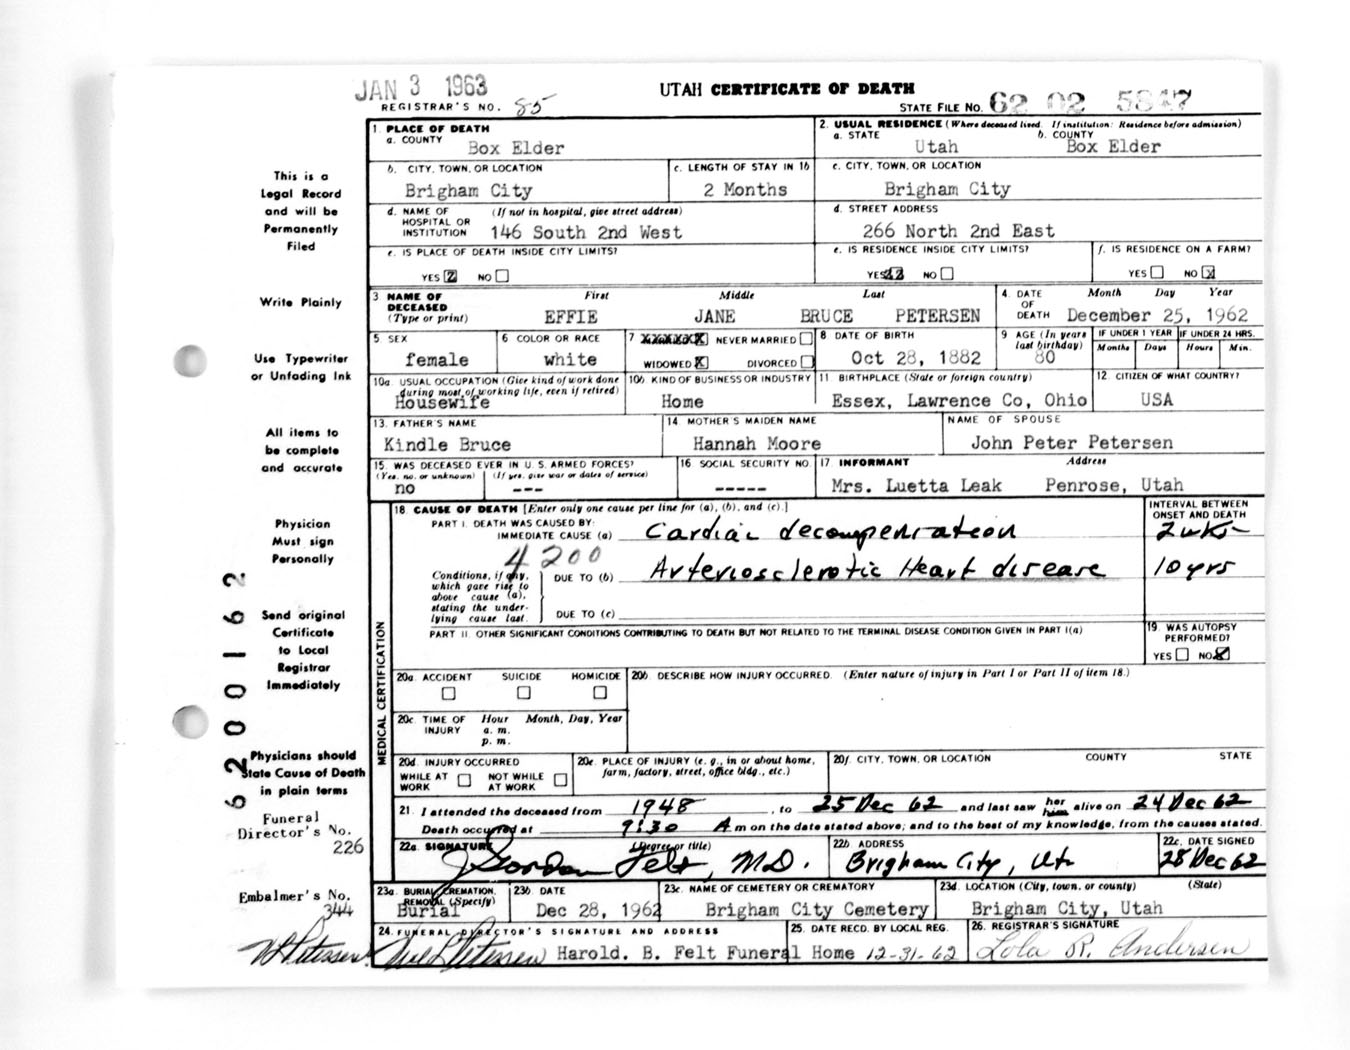 JAN 3 1963
UTAH CERTIFICATE OF DEATH
REGISTRAR'S NO. 85
STATE FILE NO. 62 02 5847
1. PLACE OF DEATH
a. COUNTY Box Elder
2. USUAL RESIDENCE (Where deceased lived. If institution: Residence before admission)
a. STATE Utah b. COUNTY Box Elder
b. CITY, TOWN, OR LOCATION Brigham City
c. LENGTH OF STAY IN 1b 2 Months
c. CITY, TOWN, OR LOCATION Brigham City
d. NAME OF HOSPITAL OR INSTITUTION (If not in hospital, give street address) 146 South 2nd West
d. STREET ADDRESS 266 North 2nd East
e. IS PLACE OF DEATH INSIDE CITY LIMITS?
YES NO
e. IS RESIDENCE INSIDE CITY LIMITS?
YES NO
f. IS RESIDENCE ON A FARM?
YES NO X
3 NAME OF DECEASED (Type or print) First Middle Last
EFFIE JANE BRUCE PETERSEN
4. DATE OF DEATH Month Day Year
December 25, 1962
5. SEX female
6 COLOR OR RACE white
7 NEVER MARRIED
WIDOWED X DIVORCED
8 DATE OF BIRTH Oct 28, 1882
9 AGE (In years last birthday) 80
IF UNDER 1 YEAR IF UNDER 24 HRS.
Months Days Hours Min.
10a. USUAL OCCUPATION (Give kind of work done during most of working life, even if retired) Housewife
10b. KIND OF BUSINESS OR INDUSTRY Home
11. BIRTHPLACE (State or foreign country) Essex, Lawrence Co, Ohio
12 CITIZEN OF WHAT COUNTRY? USA
13. FATHER'S NAME Kindle Bruce
14. MOTHER'S MAIDEN NAME Hannah Moore
NAME OF SPOUSE John Peter Petersen
15. WAS DECEASED EVER IN U.S. ARMED FORCES?
(Yes, no, or unknown) (If yes, give war or dates of service)
no ---
16 SOCIAL SECURITY NO. -----
17 INFORMANT Address
Mrs. Luetta Leak Penrose, Utah
18. CAUSE OF DEATH [Enter only one cause per line for (a), (b), and (c).]
INTERVAL BETWEEN ONSET AND DEATH
PART I. DEATH WAS CAUSED BY:
IMMEDIATE CAUSE (a) Cardiac decompensation 2 wks
4200
Conditions, if any, which gave rise to above cause (a), stating the underlying cause last.
DUE TO (b) Arteriosclerotic Heart disease 10 yrs
DUE TO (c)
PART II. OTHER SIGNIFICANT CONDITIONS CONTRIBUTING TO DEATH BUT NOT RELATED TO THE TERMINAL DISEASE CONDITION GIVEN IN PART I(a)
19. WAS AUTOPSY PERFORMED?
YES NO X
MEDICAL CERTIFICATION
20a. ACCIDENT SUICIDE HOMICIDE
20b. DESCRIBE HOW INJURY OCCURRED. (Enter nature of injury in Part I or Part II of item 18.)
20c. TIME OF INJURY Hour Month, Day, Year
a. m.
p. m.
20d. INJURY OCCURRED
WHILE AT WORK NOT WHILE AT WORK
20e. PLACE OF INJURY (e. g., in or about home, farm, factory, street, office bldg., etc.)
20f. CITY, TOWN, OR LOCATION COUNTY STATE
21. I attended the deceased from 1948, to 25 Dec 62 and last saw her him alive on 24 Dec 62
Death occurred at 9:30 A m on the date stated above; and to the best of my knowledge, from the causes stated.
22a. SIGNATURE (Degree or title) J Gordon Felt, M.D.
22b. ADDRESS Brigham City, Ut
22c. DATE SIGNED 28 Dec 62
23a. BURIAL, CREMATION, REMOVAL (Specify) Burial
23b. DATE Dec 28, 1962
23c. NAME OF CEMETERY OR CREMATORY Brigham City Cemetery
23d. LOCATION (City, town, or county) (State) Brigham City, Utah
24. FUNERAL DIRECTOR'S SIGNATURE AND ADDRESS
Harold. B. Felt Funeral Home
25. DATE RECD. BY LOCAL REG. 12-31-62
26. REGISTRAR'S SIGNATURE Lola R. Andersen
This is a
Legal Record
and will be
Permanently
Filed
Write Plainly
Use Typewriter
or Unfading Ink
All items to
be complete
and accurate
Physician
Must sign
Personally
Send original
Certificate
to Local
Registrar
Immediately
Physicians should
State Cause of Death
in plain terms
Funeral
Director's No.
226
Embalmer's No.
344
6200162